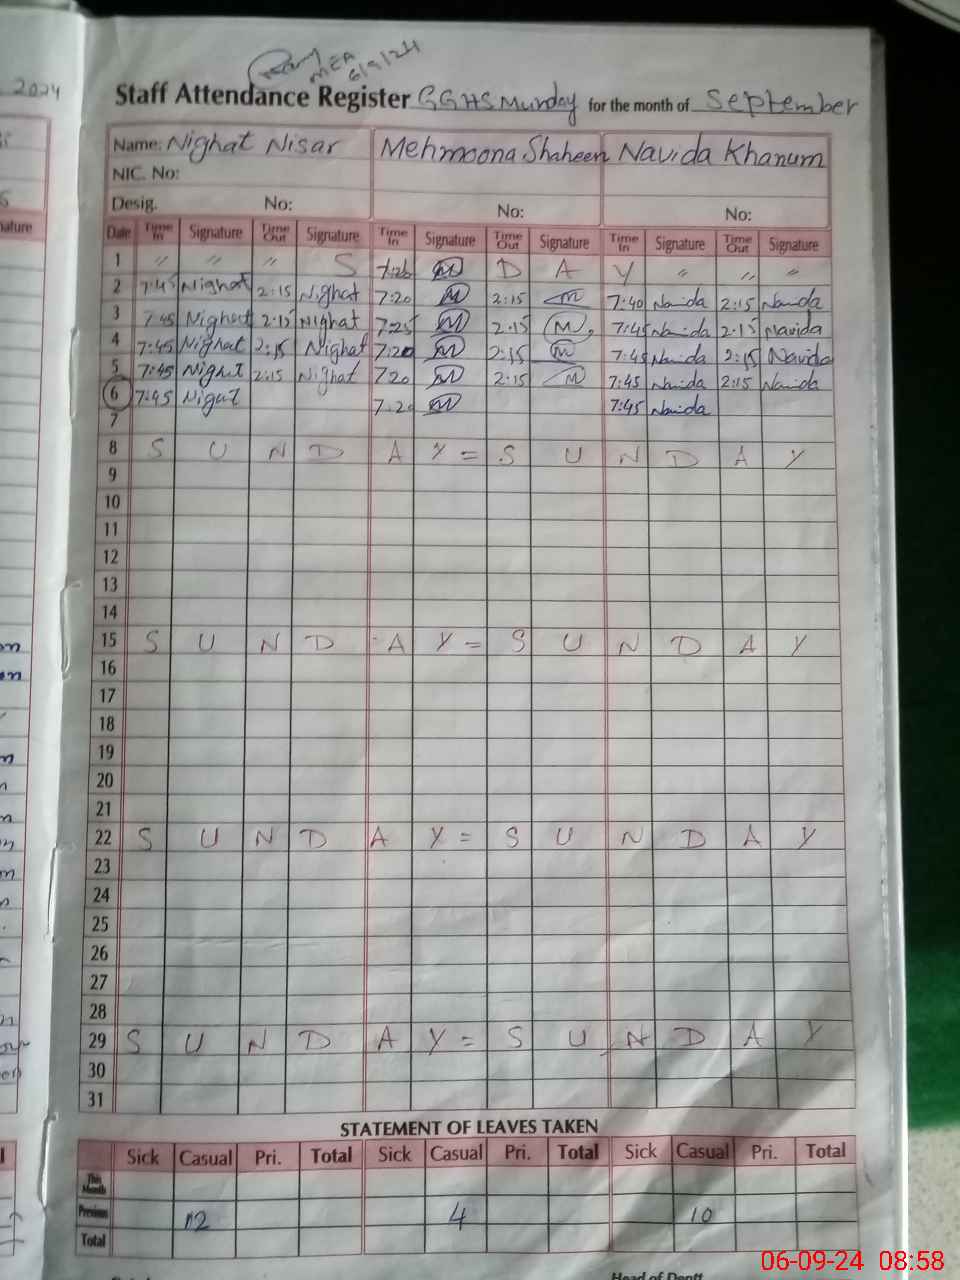 2024
MEA
6/9/24
Staff Attendance Register GGHS Munday for the month of September
Name: Nighat Nisar Mehmoona Shaheen Navida Khanum
NIC. No:
Desig. No: No: No:
Date Time In Signature Time Out Signature Time In Signature Time Out Signature Time In Signature Time Out Signature
1 " " " S 7:20 M D A Y " " "
2 7:45 Nighat 2:15 Nighat 7:20 M 2:15 M 7:40 Navida 2:15 Navida
3 7:45 Nighat 2:15 Nighat 7:25 M 2:15 M 7:45 Navida 2:15 Navida
4 7:45 Nighat 2:15 Nighat 7:20 M 2:15 M 7:45 Navida 2:15 Navida
5 7:45 Nighat 2:15 Nighat 7:20 M 2:15 M 7:45 Navida 2:15 Navida
6 7:45 Nigut 7:20 M 7:45 Navida
7
8 S U N D A Y = S U N D A Y
9
10
11
12
13
14
15 S U N D A Y = S U N D A Y
16
17
18
19
20
21
22 S U N D A Y = S U N D A Y
23
24
25
26
27
28
29 S U N D A Y = S U N D A Y
30
31
STATEMENT OF LEAVES TAKEN
Sick Casual Pri. Total Sick Casual Pri. Total Sick Casual Pri. Total
This Month
Previous 12 4 10
Total
Head of Deptt
06-09-24 08:58